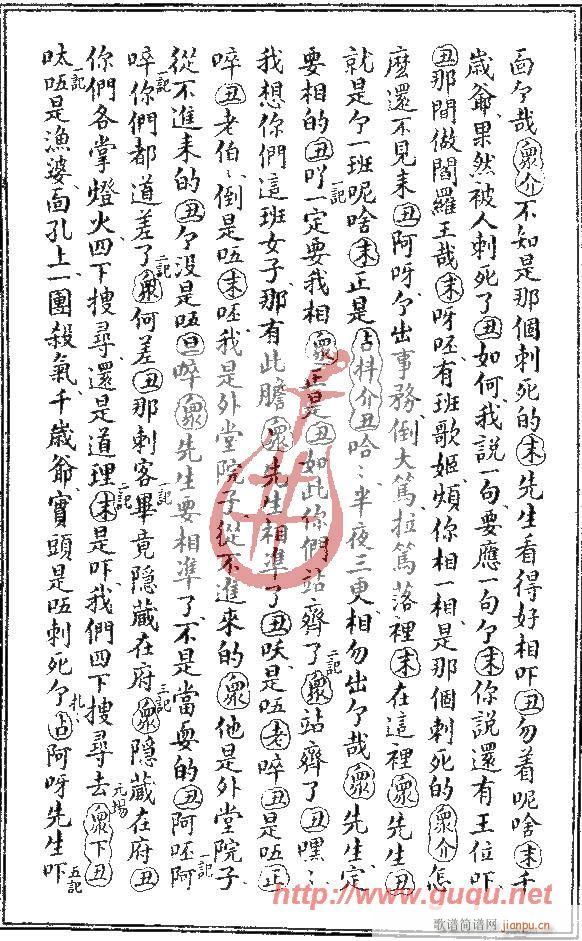 面勺哉(眾介)不知是那個刺死的(末)先生看得好相吓(丑)勿着呢啥(末)千
歲爺果然被人刺死了(丑)如何我説一句要應一句勺(末)你説還有王位吓
(丑)那間做閻羅王哉(末)呀呸有班歌姬煩你相一相是那個刺死的(眾介)怎
麼還不見来(丑)阿呀勺出事務倒大篤拉篤落裡(末)在這裡(眾)先生(丑)
就是勺一班呢啥(末)正是(占抖介丑)哈哈半夜三更相勿出勺哉(眾)先生定
一記
要相的(丑)吖一定要我相(眾)正是(丑)如此你們站齊了(眾)站齊了(丑)嘿
一記
我想你們這班女子那有此膽(眾)先生相準了(丑)呔是唔(老)啐(丑)是唔(正)
啐(丑)老伯伯倒是唔(末)呸我是外堂院子從不進來的(眾)他是外堂院子
從不進來的(丑)勺没是唔(旦)啐(眾)先生要相準了不是當耍的(丑)阿呸阿
一記
啐你們都道差了(眾)何差(丑)那刺客畢竟隱藏在府(眾)隱藏在府(丑)
一記 一記 一記 三記
你們各掌燈火四下搜尋還是道理(末)是吓我們四下搜尋去(眾下丑)
一記 元場
呔唔是漁婆面孔上一團殺氣千歲爺實頭是唔刺死勺(占)阿呀先生吓
一記 扎 五記
http://www.guqu.net
歌谱简谱网
jianpu.cn